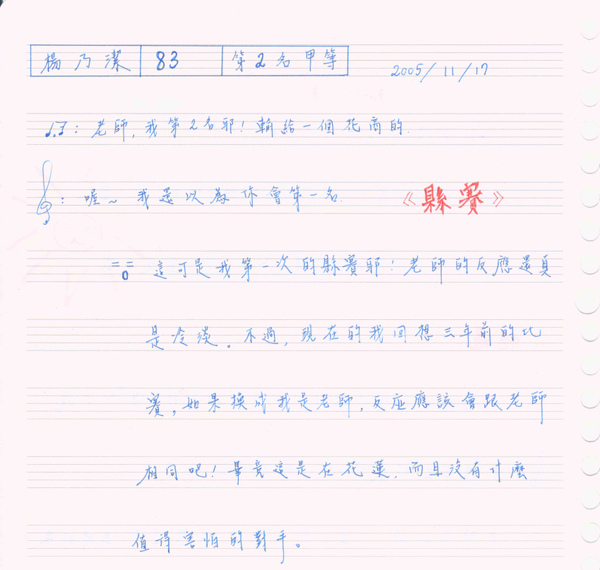 楊乃潔 83 第2名甲等 2005/11/17
J.J：老師，我第2名耶！輸給一個花商的.
：喔～我還以為你會第一名. 《縣賽》
這可是我第一次的縣賽耶！老師的反應還真
是冷淡。不過，現在的我回想三年前的比
賽，如果換成我是老師，反应應該會跟老師
相同吧！畢竟這是在花蓮，而且沒有什麼
值得害怕的對手。